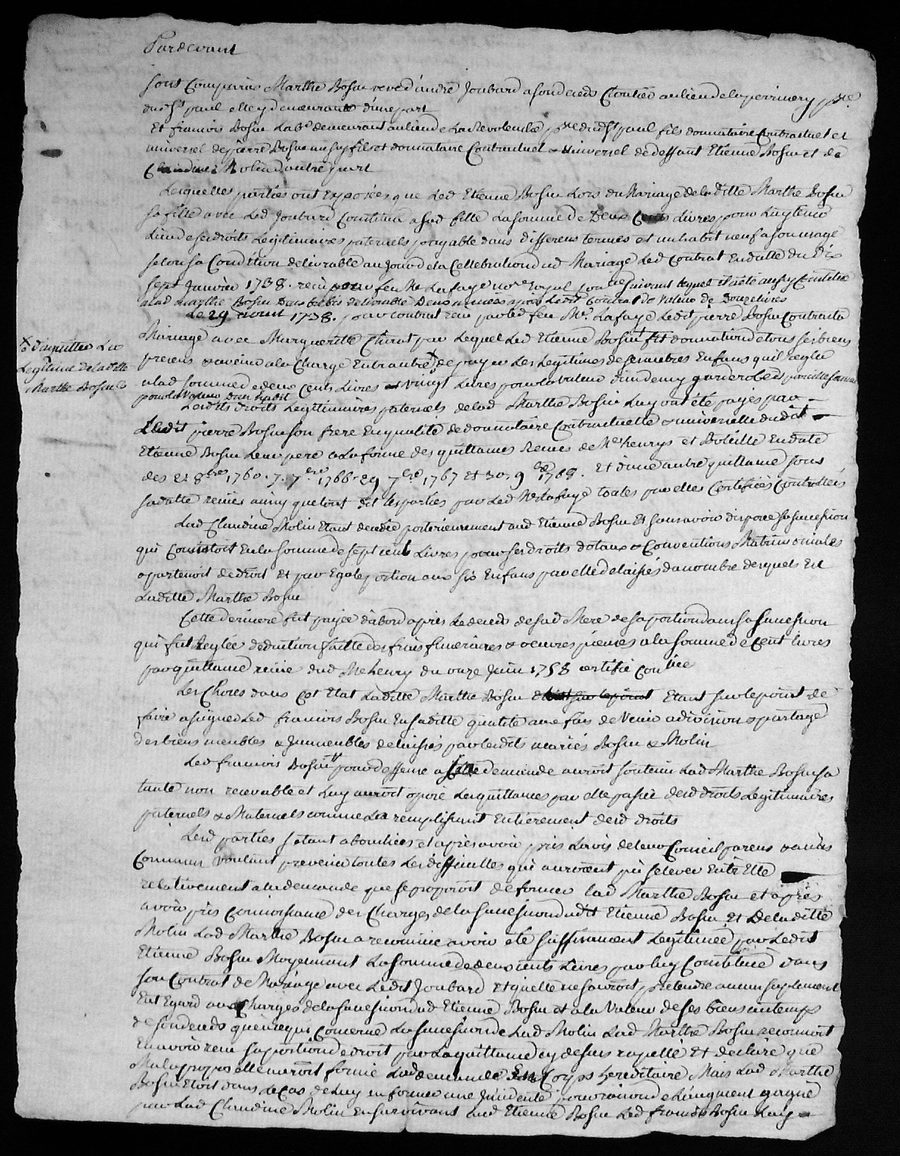 Pardevant
sont Comparus Marthe Bosin veve d'andré Joubard a son deceds Cloutier au lieu de la perrinery psse
du st paul elle y demeurante d'une part
Et francois Bosin Labr demeurant au lieu de psse dudt st paul fils donnataire Contractuel et
universel de pierre Bosin fils et donnataire Contractuel & universel de deffunt Etienne Bosin et de
Claudine Molin d'autre part
Lesquelles parties ont exposées que Led Etienne Bosin Lors du Mariage de la ditte Marthe Bosin
sa fille avec Led Joubard Constitua a sad fille La somme de Deux Cents Livres pour Luy tenir
Lieu de ses droits Legitimaires paternels payable dans differens termes et un habit neuf a son usage
selon sa Condition delivrable au Jour de la Cellebration dud Mariage Led Contrat En datte du Dix
sept Janvier 1738. reçu par feu Me Lafaye nore royal
a lad Marthe Bosin
Le 29 avril 1738. par contrat reçu par led feu Me. Lafaye Ledit pierre Bosin Contracta
Mariage avec Margueritte par Lequel Led Etienne Bosin fit donnation de tous ses biens
presens & avenir a la Charge Entrautre de payer Les Legitimes de ses autres Enfans quil regla
d'aquitter La
Legitime de la ditte
Marthe Bosin
a la somme de deux Cents Livres et vingt Livres pour la valeur d'un demy garderobe
pour la valeur d'un habit
Lesdits droits Legitimaires paternels de lad Marthe Bosin Luy ont été payes par
Ledit pierre Bosin son frere En qualité de donnataire Contractuelle & universelle dudit
Etienne Bosin Leur pere a la forme des quittances Reçues de Me henrys et En date
des 28 8bre 1760. 7. 7bre 1766. 29 7bre 1767 et 30. 9bre 1768. Et d'une autre quittance sous
sa datte reçue ainsy que tout dit les parties par Led Me Lafaye toutes par elles Certifiées Controllées
Lad Claudine Molin Etant decedée posterieurement aud Etienne Bosin Et sans avoir disposé sa succession
qui Consistoit En la somme de sept cent Livres pour ses droits dotaux & Conventions Matrimoniales
apartenoit de droit Et par Egale portion aux six Enfans par elle delaissés du nombre desquels Est
Laditte Marthe Bosin
Cette derniere fut payée d'abord apres Le deceds de sad Mere de sa portion dans sa succession
qui fut Reglée deduction faitte des frais funeraires & oeuvres pieuses a la somme de Cent Livres
par quittance reçue dud Me henry du onze Juin 1758 certifié Conllée
Les Choses dans Cet Etat Laditte Marthe Bosin Etant sur le point de
faire assigner Led francois Bosin En saditte qualité aux fins de Venir a division & partage
des biens meubles & Immeubles delaissés par lesdits mariés Bosin & Molin
Led francois Bosin pour deffense a cette demande auroit soutenu Lad Marthe Bosin sa
tante non recevable et Luy auroit oposé Les quittances par elle passée desd droits Legitimaires
paternels & Maternels comme La remplissant Entierement desd droits
Lesd parties s'etant abouchées et apres avoir pris L'avis de leur Conseil parens & amis
Communs voulant prevenir toutes Les difficultes qui auroient pû s'elever Entre Elle
relativement a la demande que se proposoit de former lad Marthe Bosin et apres
avoir pris Connoissance des Charges de la succession dudit Etienne Bosin Et De laditte
Molin Lad Marthe Bosin a reconnue avoir eté suffisament Legitimée par Ledit
Etienne Bosin Moyennant La somme de deux cents Livres par luy Constituée dans
son Contrat de Mariage avec Ledit Joubard Et quelle ne sauroit pretendre aucun suplement
Eut Egard aux Charges de la succession dud Etienne Bosin et a la Valeur de ses biens au temps
de son deceds que en ce qui Concerne La succession de Lad Molin Lad Marthe Bosin reconnoit
En avoir reçu sa portion de droit par La quittance cy dessus rapellé Et declare que
Mal a propos elle auroit formé Lad demande En Corps hereditaire Mais Lad Marthe
Bosin Etoit dans Le Cas de
par Lad Claudine Molin En survivant Led Etienne Bosin Led francois Bosin Luy a